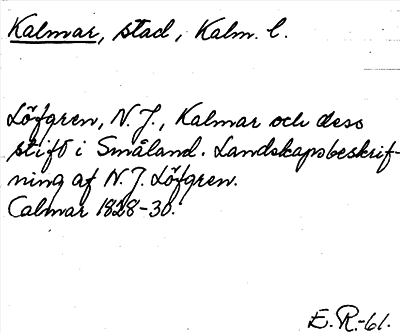 Kalmar, stad, Kalm. l.
Löfgren, N. J., Kalmar och dess
stift i Småland. Landskapsbeskrif-
ning af N. J. Löfgren.
Calmar 1828-30.
E. R.-61.